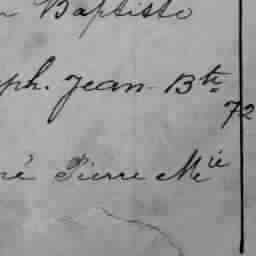 n Baptiste
ph. Jean Bte
72
né Pierre Mie